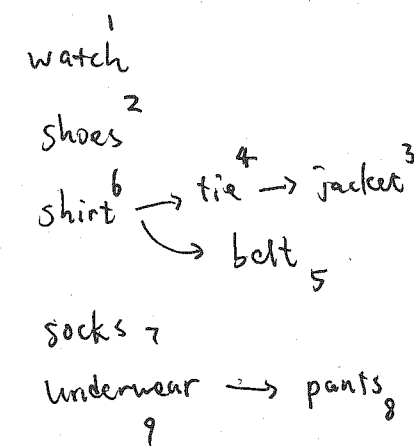 watch 1
shoes 2
shirt 6 → tie 4 → jacket 3
belt 5
socks 7
underwear 9 → pants 8